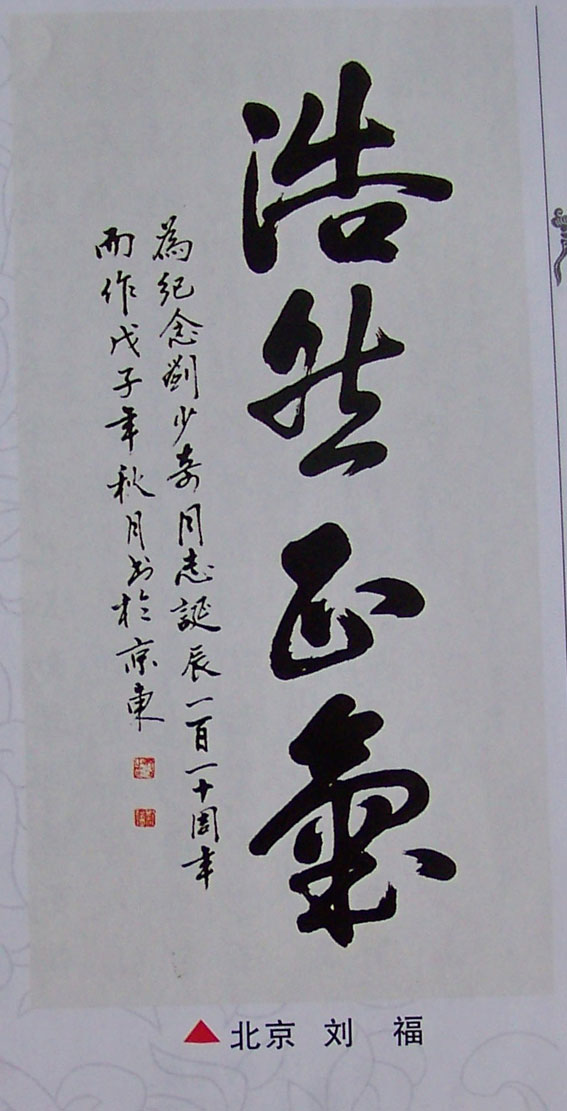 浩然正氣
為紀念劉少奇同志誕辰一百一十周年
而作戊子年秋月书於京東
▲北京 刘 福